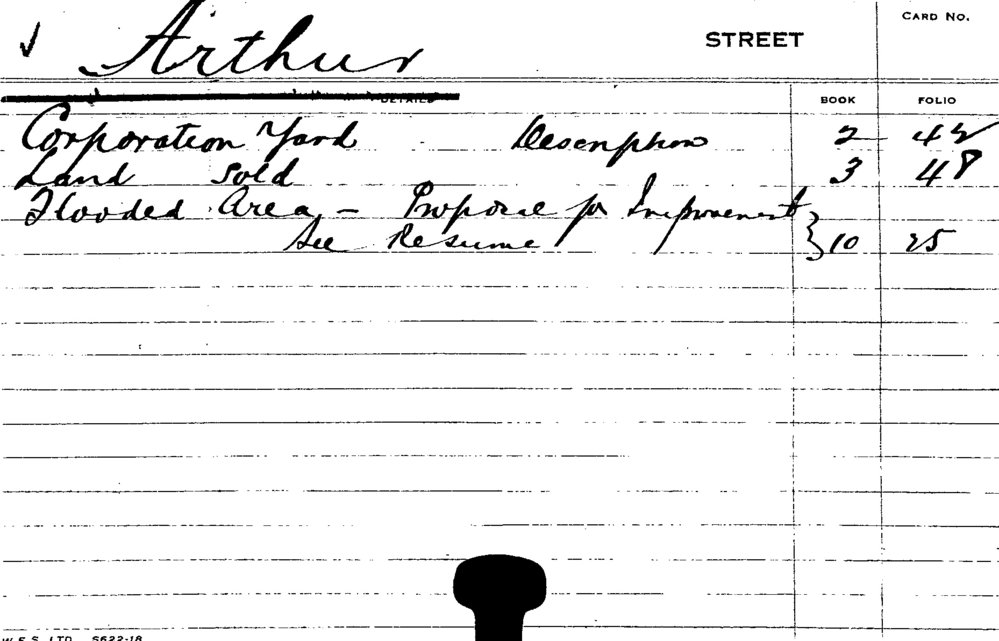 CARD NO.
✓ Arthur STREET
DETAILS BOOK FOLIO
Corporation Yard Description 2 42
Land Sold 3 48
Flooded Area - Propose for Improvement
See Resume } 10 25
W.F.S. LTD. S622-18